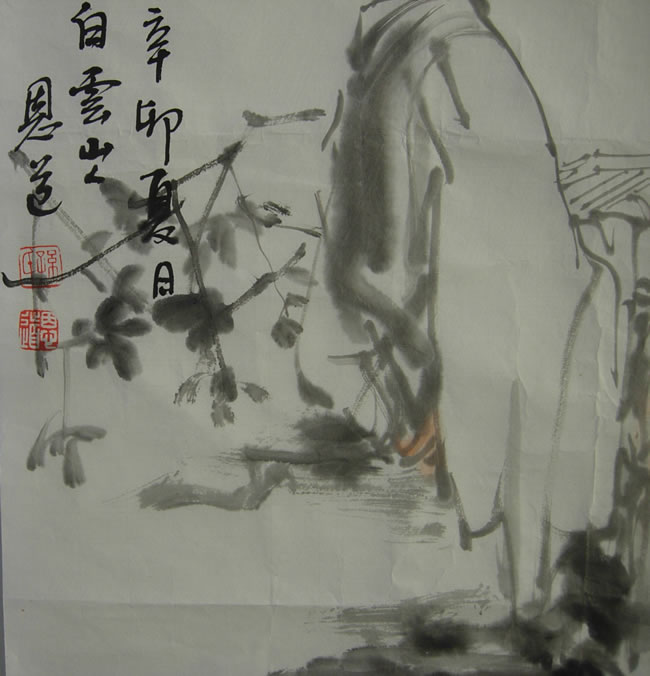 辛卯夏日
白雲山人
恩道
恩道